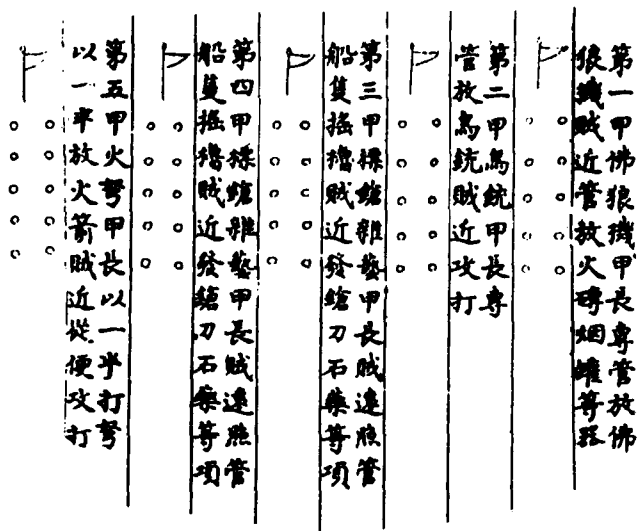 第一甲佛狼機甲長專管放佛
狼機賊近管放火磚烟罐等器
第二甲鳥銃甲長專
管放鳥銃賊近攻打
第三甲摽鎗雜藝甲長賊遠照管
船隻搖櫓賊近發鎗刀石藥等項
第四甲摽鎗雜藝甲長賊遠照管
船隻搖櫓賊近發鎗刀石藥等項
第五甲火弩甲長以一半打弩
以一半放火箭賊近從便攻打